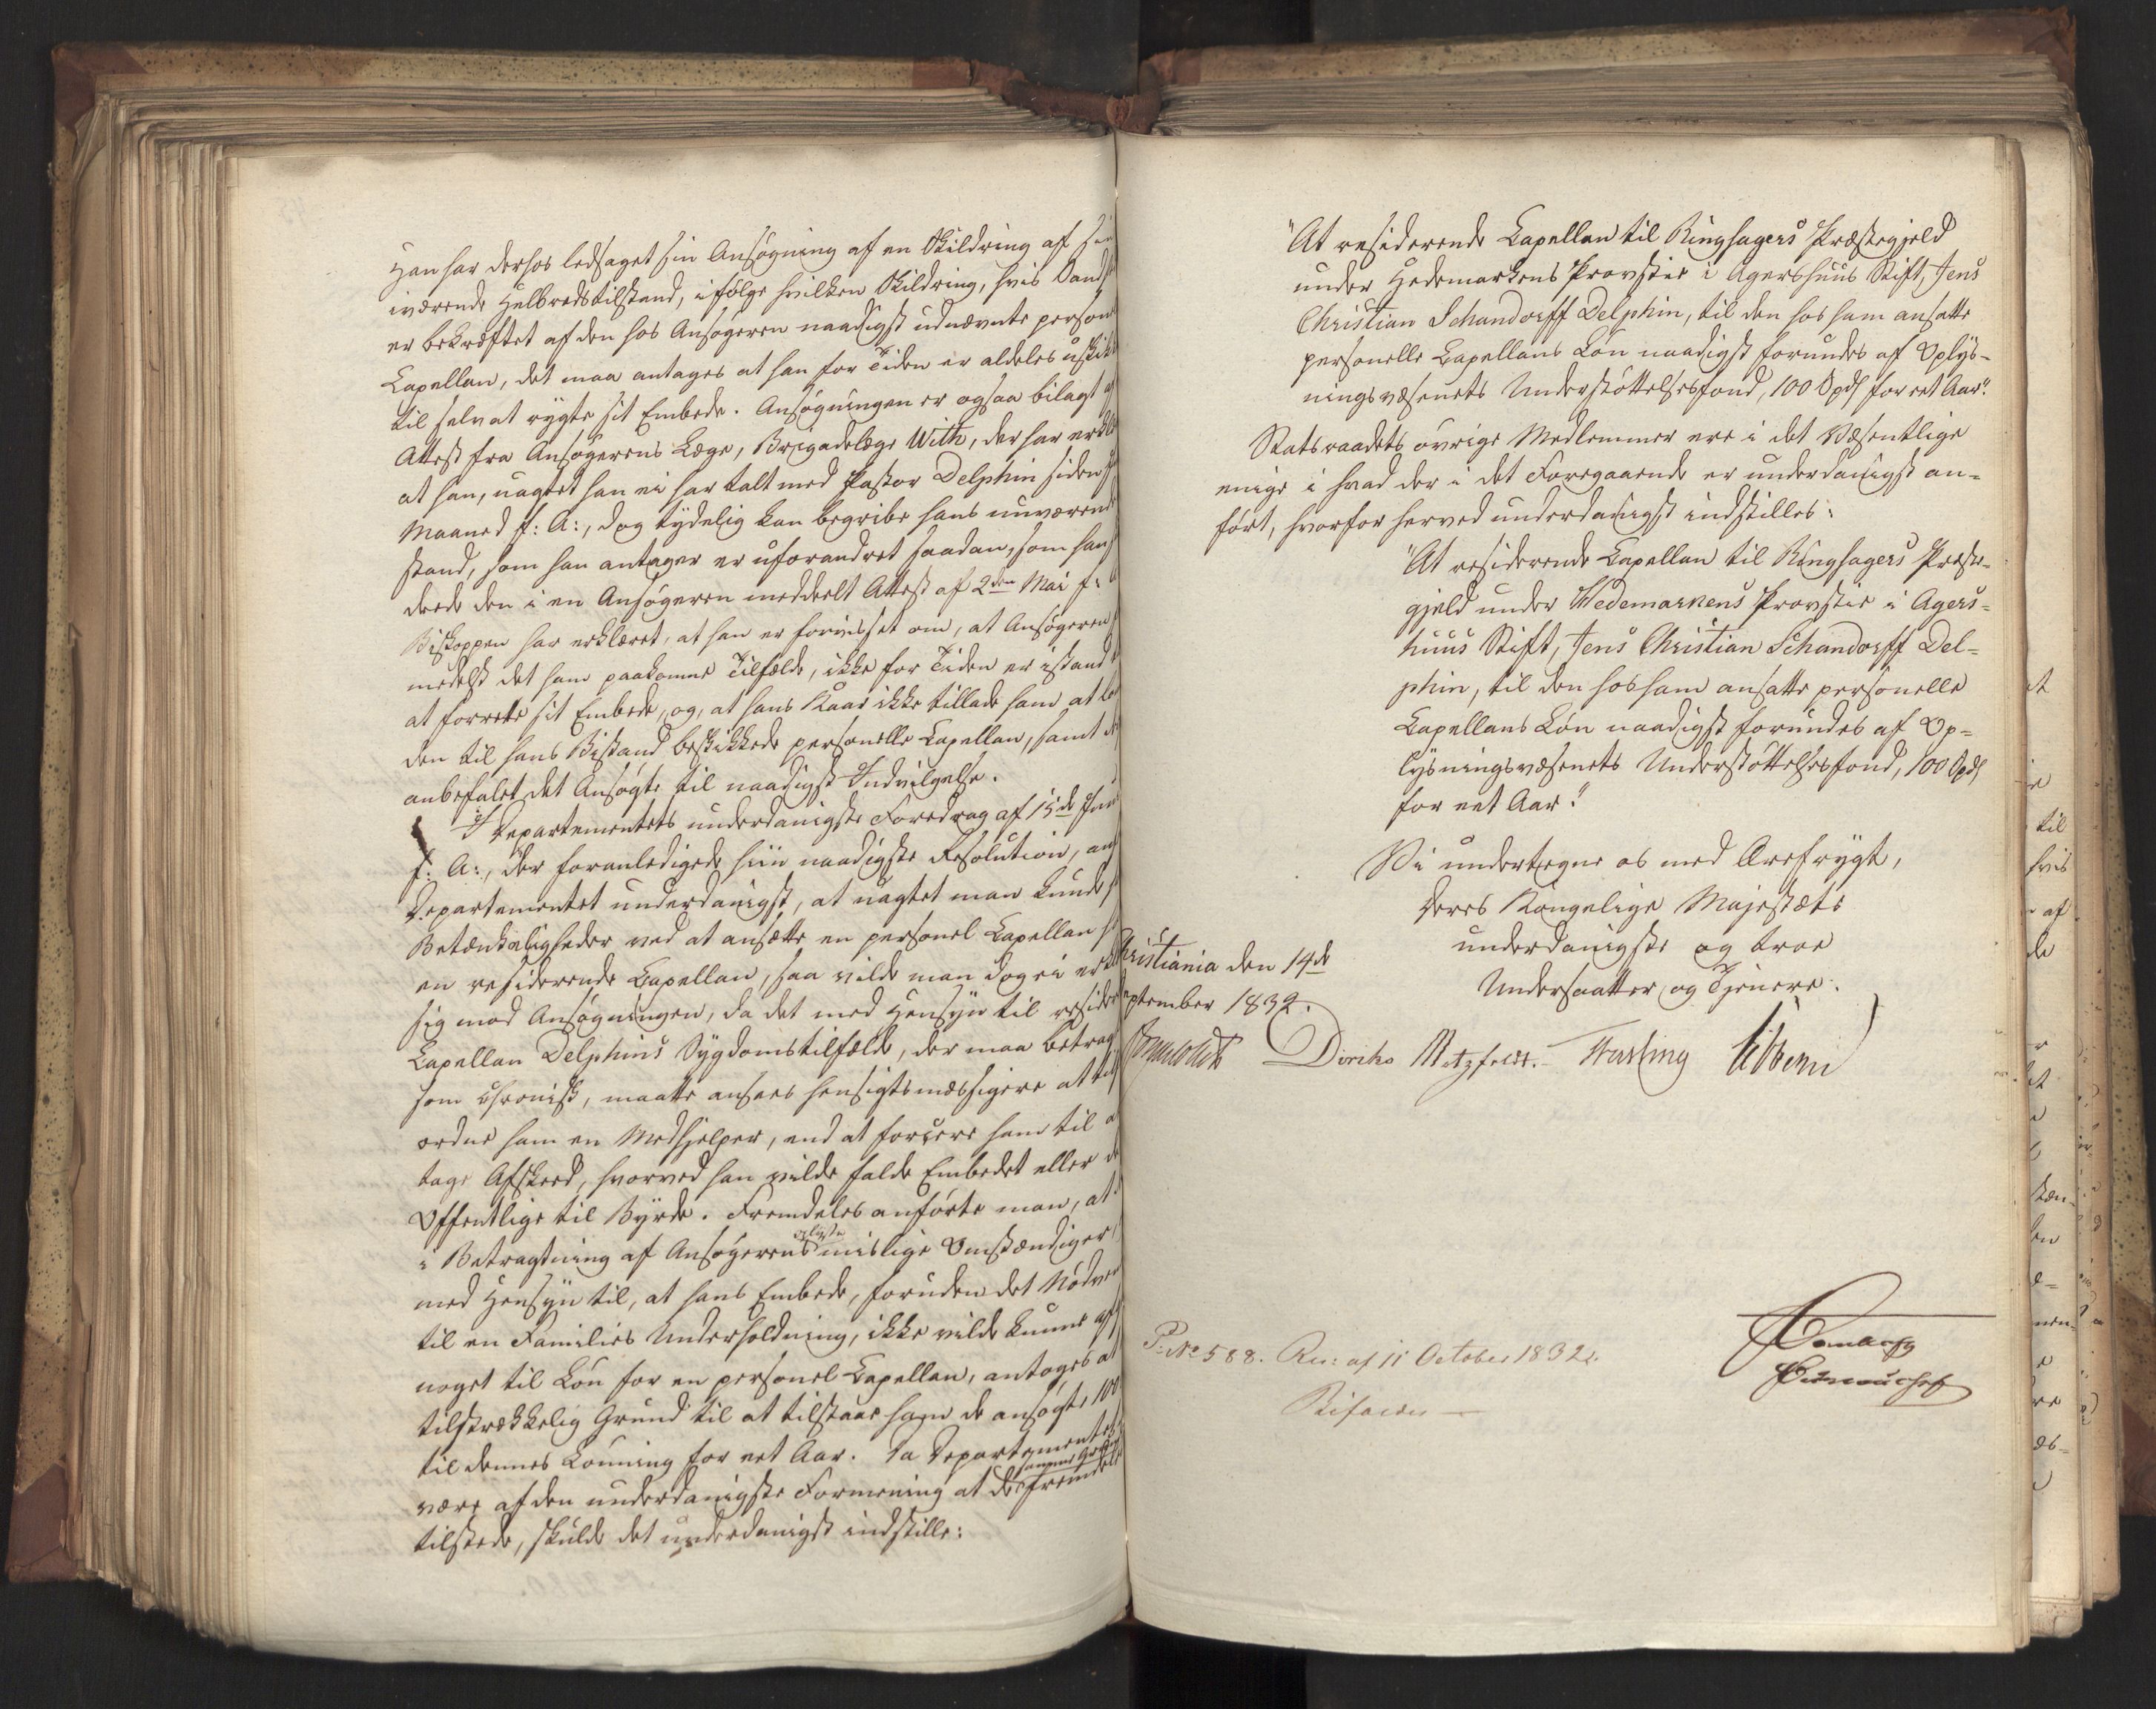 Han har derhos ledsaget sin Ansøgning af en Skildring af sin
iværende Helbredstilstand, ifølge hvilken Skildring, hvis Sand
er bekræftet af den hos Ansøgeren naadigst udnævnte person
Capellan, det maa antages at han for Tiden er aldeles uskik
til selv at røgte sit Embede. Ansøgningen er ogsaa bilagt
Attest fra Ansøgerens Læge, Brigadelæge With, der har erklæ
at han, uagtet han ei har talt med Pastor Delphin siden
Maaned f: A:, dog tydelig kan begribe hans nuværende
stand, som han antager er uforandret saadan, som han
derede den i en Ansøgeren meddeelt Attest af 2den Mai f:
Biskoppen har erklæret, at han er forvisset om, at Ansøgeren
medelst det ham paakomne Tilfælde, ikke for Tiden er istand
at forrette sit Embede, og, at hans Kaar ikke tillade ham at lø
den til hans Bistand beskikkede personelle Capellan, samt
anbefalet det Ansøgte til naadigst Indvilgelse.
I Departementets underdanigste Foredrag af 15de Jun
f: A:, der foranledigede hiin naadigste Resolution, anf
Departementet underdanigst, at uagtet man kunde
Betænkeligheder ved at ansætte en personel Capellan
en residerende Capellan, saa vilde man dog ei erkl
sig mod Ansøgningen, da det med Hensyn til resider
Capellan Delphins Sygdomstilfælde, der maa betrag
som chronisk, maatte ansees hensigtsmæssigere at til
ordne ham en Medhjelper, end at forcere ham til a
tage Afskeed, hvorved han vilde falde Embedet eller d
Offentlige til Byrde. Fremdeles anførte man, at
oplyste
i Betragtning af Ansøgerens mislige Omstændigheder
med Hensyn til, at hans Embede, foruden det Nødven
til en Families Underholdning, ikke vilde kunne afg
noget til Løn for en personel Capellan, antoges at
tilstrækkelig Grund til at tilstaae ham de ansøgte 100
til dennes Lønning for eet Aar. Da Departementet
samme Grund
være af den underdanigste Formening at de fremdeles
tilstede, skulde det underdanigst indstille:
"At residerende Capellan til Ringsagers Præstegjeld
under Hedemarkens Provstie i Agershuus Stift, Jens
Christian Schandorff Delphin, til den hos ham ansatte
personelle Capellans Løn naadigst forundes af Oplys-
ningsvæsenets Understøttelsesfond, 100 Spd for eet Aar."
Statsraadets øvrige Medlemmer ere i det Væsentlige
enige i hvad der i det Foregaaende er underdanigst an-
ført, hvorfor herved underdanigst indstilles:
"At residerende Capellan til Ringsagers Præste-
gjeld under Hedemarkens Provstie i Agers-
huus Stift, Jens Christian Schandorff Del-
phin, til den hos ham ansatte personelle
Capellans Løn naadigst forundes af Op-
lysningsvæsenets Understøttelsesfond, 100 Spd
for eet Aar."
Vi undertegne os med Ærefrygt,
Deres Kongelige Majestæts
underdanigste og troe
Undersaatter og Tjenere.
hristiania den 14de
eptember 1832.
Diriks Motzfeldt. Fasting Vibe
P: No 588. Res: af 11 October 1832.
Bifaldes